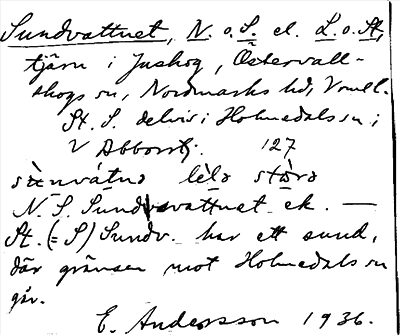 Sundvattnet, N. o. S. el. L. o. St.,
tjärn i Juskog, Östervall-
skogs sn, Nordmarks hd, Vrml.
St. S. delvis i Holmedals sn i
V 127
lèlə stòrə
N. S. Sundsvattnet ek. —
St. (= S) Sundv. har ett sund,
där gränsen mot Holmedals sn
går.
E. Andersson 1936.